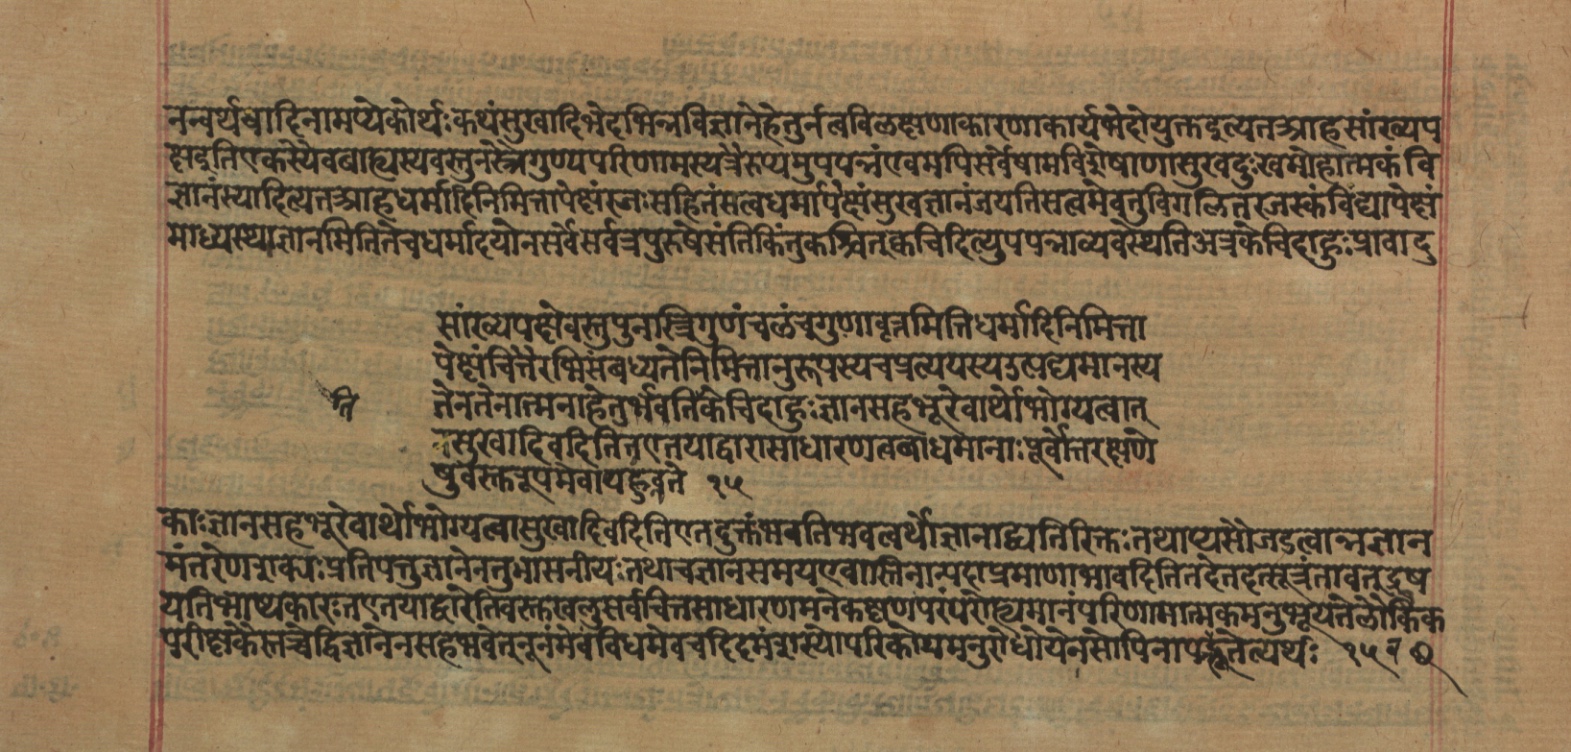 नन्वर्थवादिनामप्येकोर्थः कथंसुखादिभेदभिन्नविज्ञानेहेतुर्नत्वविलक्षणाकारणाकार्यभेदोयुक्तइत्यतआहसांख्यप
क्षइतिएकस्यैवबाह्यस्यवस्तुनस्त्रैगुण्यपरिणामस्यत्रैरूप्यमुपपन्नंएवमपिसर्वेषामविशेषाणासुखदुःखमोहात्मकंवि
ज्ञानंस्यादित्यतआहधर्मादिनिमित्तापेक्षंरजःसहितंसत्वधर्मापेक्षंसुखज्ञानंजयतिसत्वमेवतुविगलितरजस्कंविद्यापेक्षं
माध्यस्थ्याज्ञानमितितेचधर्मादयोनसर्वेसर्वत्रपुरुषेसंतिकिंतुकश्चित्क्वचिदित्युपपन्नाव्यवस्थतिअत्रकेचिदाहुःप्रावादु
सांख्यपक्षेवस्तुपुनस्त्रिगुणंचलंचगुणावृत्तमितिधर्मादिनिमित्ता
पेक्षंचित्तैरभिसंबध्यतेनिमित्तानुरूपस्यचप्रत्ययस्यउत्पद्यमानस्य
ति
तेनतेनात्मनाहेतुर्भवतिकेचिदाहुःज्ञानसहभूरेवार्थोभोग्यत्वात्
सुखादिवदितितएतयाद्वारासाधारणत्वबाधमानाःपूर्वोत्तरक्षणे
षुवस्तुरूपमेवापह्नुवते १५
काःज्ञानसहभूरेवार्थोभोग्यत्वासुखादिवदितिएतदुक्तंभवतिभवत्वर्थोज्ञानाद्व्यतिरिक्तःतथाप्यसौजडत्वान्नज्ञान
मंतरेणशक्यःप्रतिपत्तुज्ञानेनतुभासनीयःतथाचज्ञानसमयएवास्तिनान्यदाप्रमाणाभावदितितदेतदृत्सूत्रंतावत्दूष
यतिभाष्यकारःतएतयाद्वारेतिवस्तुखलुसर्वचित्तसाधारणमनेकक्षणपरंपरोह्यमानंपरिणामात्मकमनुभूयतेलौकिक
परीक्षकैस्तच्चेद्विज्ञानेनसहभवेत्नूनंमेवंविधमेवचदिदमंशस्योपरिकोयमनुरोधोयेनसोपिनापह्नूतेत्यर्थः १५